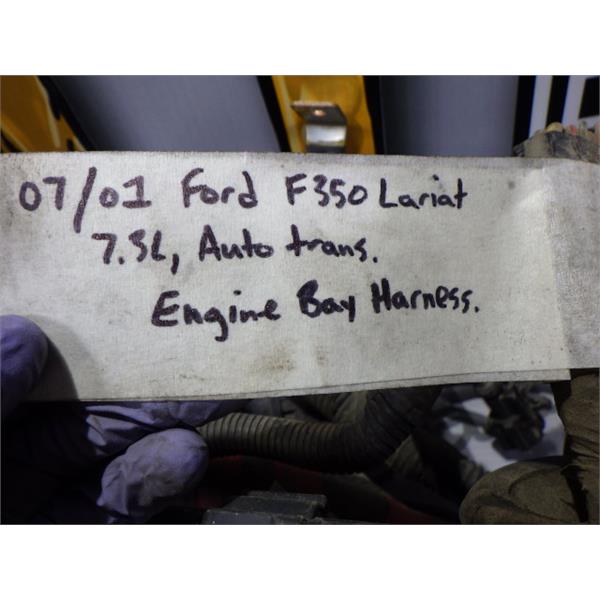 07/01 Ford F350 Lariat
7.3L, Auto trans.
Engine Bay Harness.